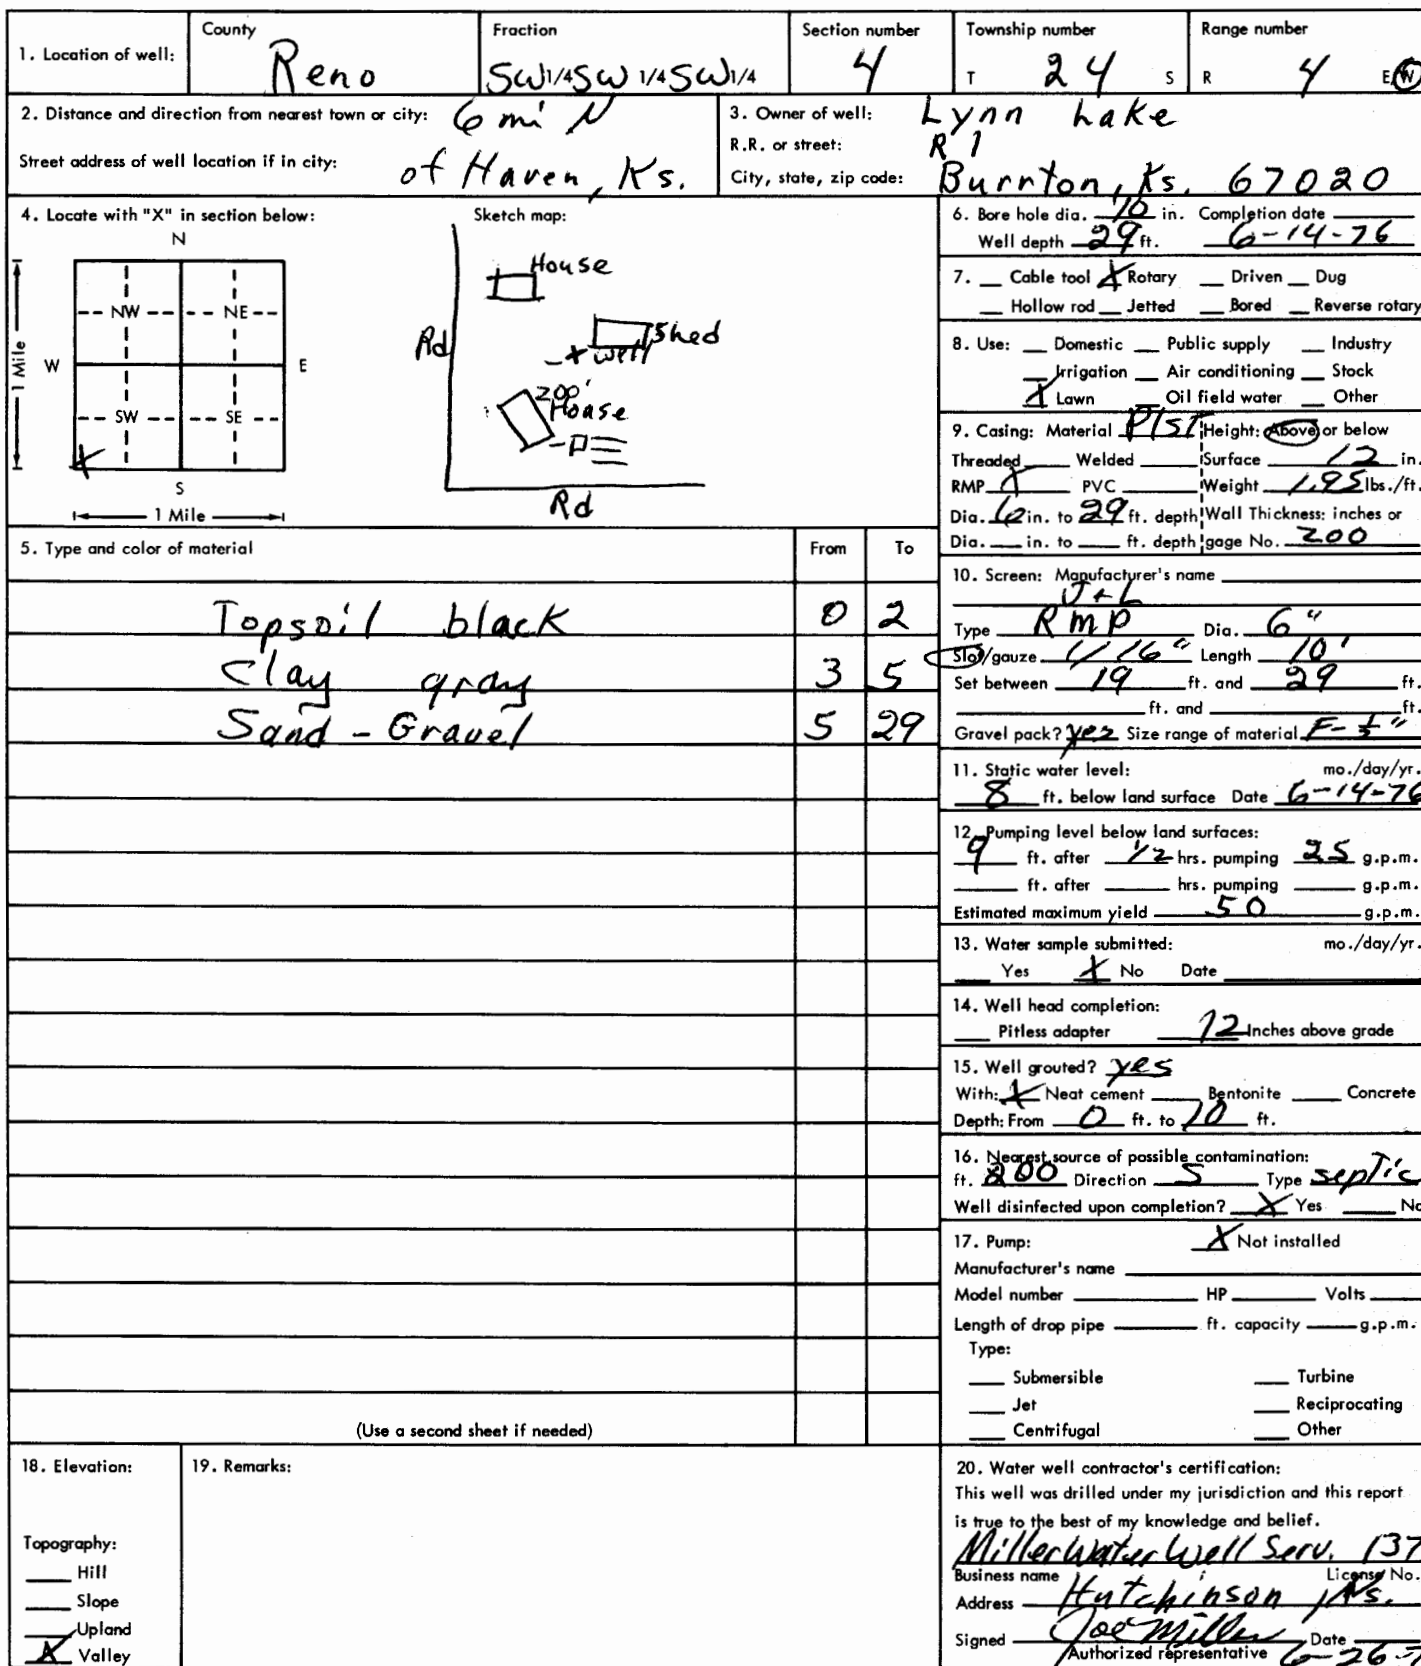 County Fraction Section number Township number Range number
1. Location of well: Reno SW 1/4 SW 1/4 SW 1/4 4 T 24 S R 4 E/W
2. Distance and direction from nearest town or city: 6 mi N
Street address of well location if in city: of Haven, Ks.
3. Owner of well: Lynn Lake
R.R. or street: R 1
City, state, zip code: Burrton, Ks. 67020
4. Locate with "X" in section below:
N
NW NE
W E
1 Mile
SW SE
X
S
1 Mile
Sketch map:
House
Shed
Rd
x well
200'
House
Rd
5. Type and color of material From To
Topsoil black 0 2
Clay gray 3 5
Sand - Gravel 5 29
(Use a second sheet if needed)
6. Bore hole dia. 10 in. Completion date
Well depth 29 ft. 6-14-76
7. __ Cable tool X Rotary __ Driven __ Dug
__ Hollow rod __ Jetted __ Bored __ Reverse rotary
8. Use: __ Domestic __ Public supply __ Industry
__ Irrigation __ Air conditioning __ Stock
X Lawn __ Oil field water __ Other
9. Casing: Material Plst Height: Above or below
Threaded __ Welded __ Surface 12 in.
RMP X PVC __ Weight 1.95 lbs./ft.
Dia. 6 in. to 29 ft. depth Wall Thickness: inches or
Dia. __ in. to __ ft. depth gage No. 200
10. Screen: Manufacturer's name
J + L
Type RMP Dia. 6"
Slot/gauze 1/16" Length 10'
Set between 19 ft. and 29 ft.
__ ft. and __ ft.
Gravel pack? yes Size range of material
11. Static water level: mo./day/yr.
8 ft. below land surface Date 6-14-76
12. Pumping level below land surfaces:
9 ft. after 1/2 hrs. pumping 25 g.p.m.
__ ft. after __ hrs. pumping __ g.p.m.
Estimated maximum yield 50 g.p.m.
13. Water sample submitted: mo./day/yr.
__ Yes X No Date
14. Well head completion:
__ Pitless adapter 12 Inches above grade
15. Well grouted? yes
With: X Neat cement __ Bentonite __ Concrete
Depth: From 0 ft. to 10 ft.
16. Nearest source of possible contamination:
ft. 200 Direction S Type septic
Well disinfected upon completion? X Yes __ No
17. Pump: X Not installed
Manufacturer's name
Model number __ HP __ Volts
Length of drop pipe __ ft. capacity __ g.p.m.
Type:
__ Submersible __ Turbine
__ Jet __ Reciprocating
__ Centrifugal __ Other
18. Elevation:
Topography:
__ Hill
__ Slope
__ Upland
X Valley
19. Remarks:
20. Water well contractor's certification:
This well was drilled under my jurisdiction and this report
is true to the best of my knowledge and belief.
Miller Water Well Serv. 137
Business name License No.
Address Hutchinson, Ks.
Signed Joe Miller Date
Authorized representative 6-26-7